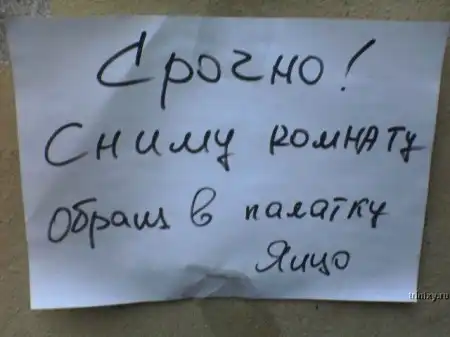 Срочно!
Сниму комнату
Обращ в палатку
Яицо
trinixy.ru